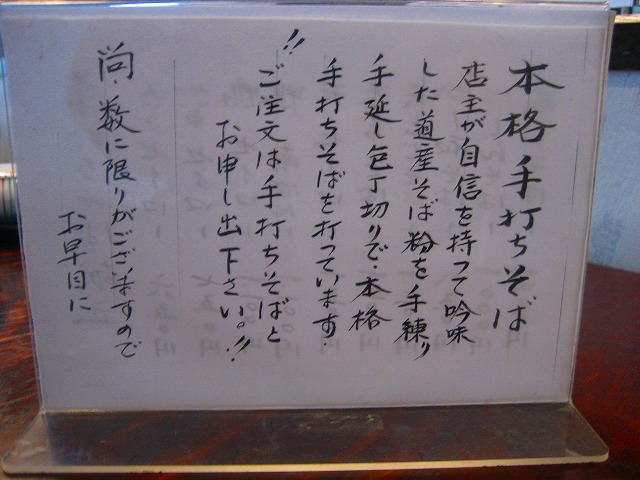 本格手打ちそば
店主が自信を持つて吟味
した道産そば粉を手練り
手延し包丁切りで、本格
手打ちそばを打っています。
!!ご注文は手打ちそばと
お申し出下さい。!!
尚、数に限りがございますので
お早目に